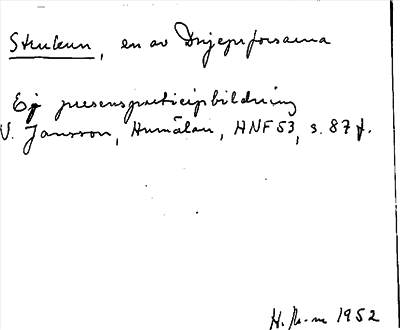 Strukun, en av Dnjeprforsarna
Ej presensparticipbildning
V. Jansson, Humälan, HNF 53, s. 87 f.
1952